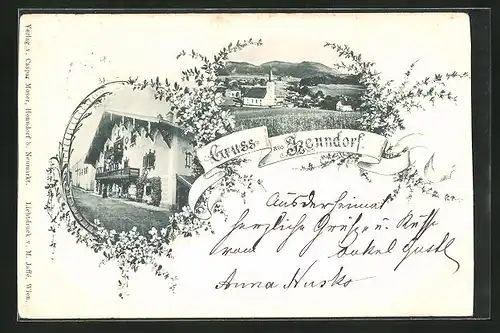 Gruss aus Henndorf.
Aus der Heimat
herzliche Grüße u. Küsse
von Onkel Gustl
Anna Nusko
Verlag v. Caspar Moser, Henndorf b. Neumarkt. Lichtdruck v. M. Jaffé, Wien.